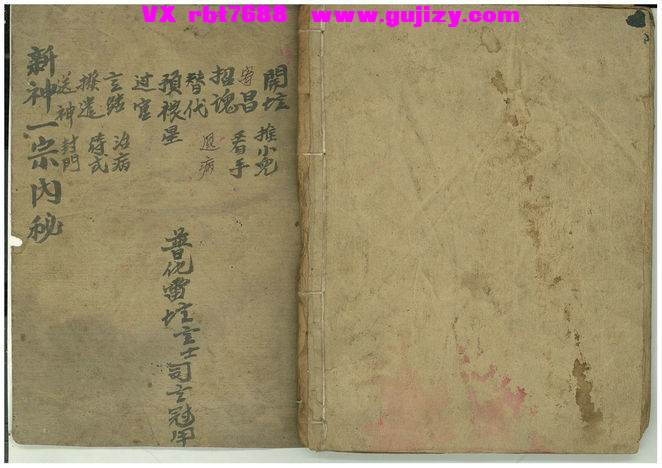 VX rbt7688 www.gujizy.com
開坛 推小兒
寄昌 看手
招魂
替代 退病
預禳星
过宫
玄路 治病
撥遣 符式
送神 封門
新神一宗内秘
普化雷坛玄士司玄冠用